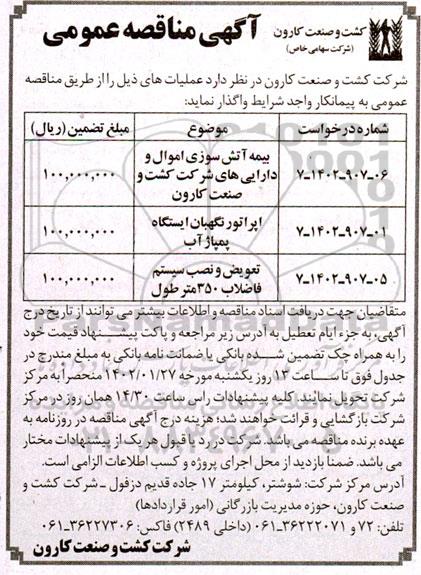 کشت و صنعت کارون
(شرکت سهامی خاص)
آگهی مناقصه عمومی
شرکت کشت و صنعت کارون در نظر دارد عملیات های ذیل را از طریق مناقصه
عمومی به پیمانکار واجد شرایط واگذار نماید:
شماره درخواست موضوع مبلغ تضمین (ریال)
۷-۱۴۰۲-۹۰۷-۰۶ بیمه آتش سوزی اموال و دارایی های شرکت کشت و صنعت کارون ۱۰۰,۰۰۰,۰۰۰
۷-۱۴۰۲-۹۰۷-۰۱ اپراتور نگهبان ایستگاه پمپاژ آب ۱۰۰,۰۰۰,۰۰۰
۷-۱۴۰۲-۹۰۷-۰۵ تعویض و نصب سیستم فاضلاب ۳۵۰ متر طول ۱۰۰,۰۰۰,۰۰۰
متقاضیان جهت دریافت اسناد مناقصه و اطلاعات بیشتر می توانند از تاریخ درج
آگهی، به جزء ایام تعطیل به آدرس زیر مراجعه و پاکت پیشنهاد قیمت خود
را به همراه چک تضمین شده بانکی یا ضمانت نامه بانکی به مبلغ مندرج در
جدول فوق تا ساعت ۱۳ روز یکشنبه مورخه ۱۴۰۲/۰۱/۲۷ منحصراً به مرکز
شرکت تحویل نمایند. کلیه پیشنهادات راس ساعت ۱۴/۳۰ همان روز در مرکز
شرکت بازگشایی و قرائت خواهند شد؛ هزینه درج آگهی مناقصه در روزنامه به
عهده برنده مناقصه می باشد. شرکت در رد یا قبول هر یک از پیشنهادات مختار
می باشد. ضمنا بازدید از محل اجرای پروژه و کسب اطلاعات الزامی است.
آدرس مرکز شرکت: شوشتر، کیلومتر ۱۷ جاده قدیم دزفول ـ شرکت کشت و
صنعت کارون، حوزه مدیریت بازرگانی (امور قراردادها)
تلفن: ۷۲ و ۳۶۲۲۲۰۷۱-۰۶۱ (داخلی ۲۴۸۹) فاکس: ۳۶۲۲۷۳۰۶-۰۶۱
شرکت کشت و صنعت کارون